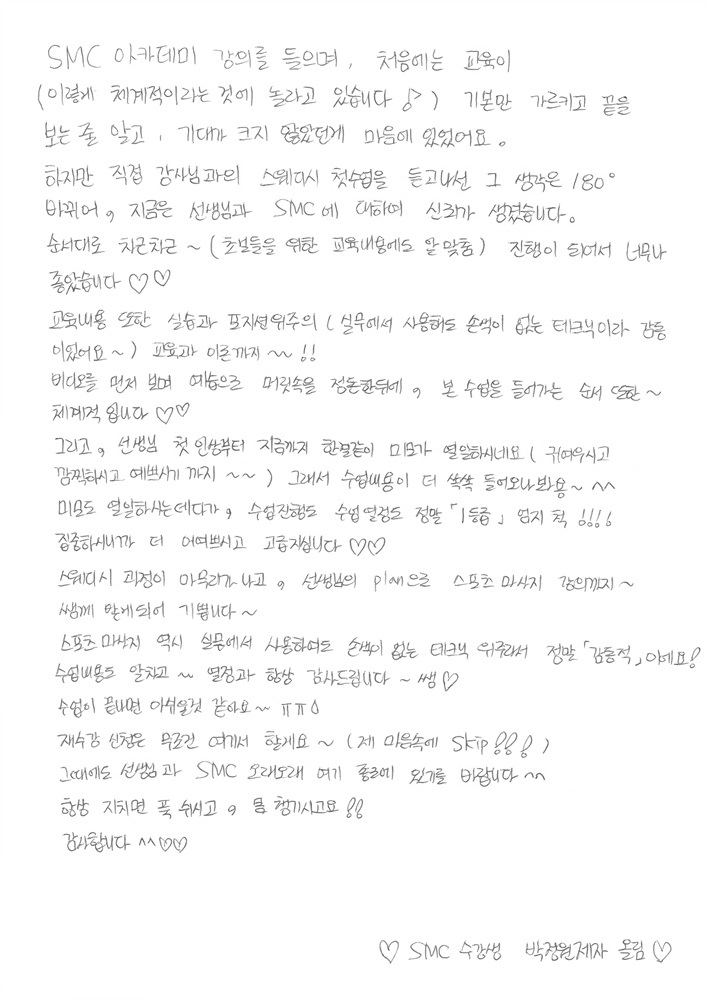 SMC 아카데미 강의를 들으며, 처음에는 교육이
(이렇게 체계적이라는 것에 놀라고 있습니다 ♪) 기본만 가르키고 끝을
보는 줄 알고, 기대가 크지 않았던게 마음에 있었어요.
하지만 직접 강사님과의 스웨디시 첫수업을 듣고나선 그 생각은 180°
바뀌어, 지금은 선생님과 SMC에 대하여 신뢰가 생겼습니다.
순서대로 차근차근~ (초보들을 위한 교육내용에도 알맞춤) 진행이 되어서 너무나
좋았습니다 ♡♡
교육내용 또한 실습과 포지션위주의 (실무에서 사용해도 손색이 없는 테크닉이라 감동
이었어요~) 교육과 이론까지~~!!
비디오를 먼저 보며 예습으로 머릿속을 정돈한뒤에, 본 수업을 들어가는 순서 또한~
체계적 입니다 ♡♡
그리고, 선생님 첫 인상부터 지금까지 한결같이 미모가 열일하시네요 (귀여우시고
깜찍하시고 예쁘시기 까지~~) 그래서 수업내용이 더 쏙쏙 들어오나봐용~ ^^
미모도 열일하시는데다가, 수업진행도 수업열정도 정말 「1등급」 엄지 척 !!!!
집중하시니까 더 어여쁘시고 고급지십니다 ♡♡
스웨디시 과정이 마무리가 나고, 선생님의 plan으로 스포츠 마사지 강의까지~
쌤께 받게되어 기쁩니다~
스포츠 마사지 역시 실무에서 사용하여도 손색이 없는 테크닉 위주라서 정말 「감동적」이네요!
수업내용도 알차고~ 열정과 항상 감사드립니다~ 쌤♡
수업이 끝나면 아쉬울것 같아요~ ㅠㅠ
재수강 신청은 무조건 여기서 할게요~ (제 마음속에 skip!!!)
그때에도 선생님과 SMC 오래오래 여기 종로에 있기를 바랍니다^^
항상 지치면 푹 쉬시고, 몸 챙기시고요!!
감사합니다 ^^♡♡
♡ SMC 수강생 박정원제자 올림 ♡